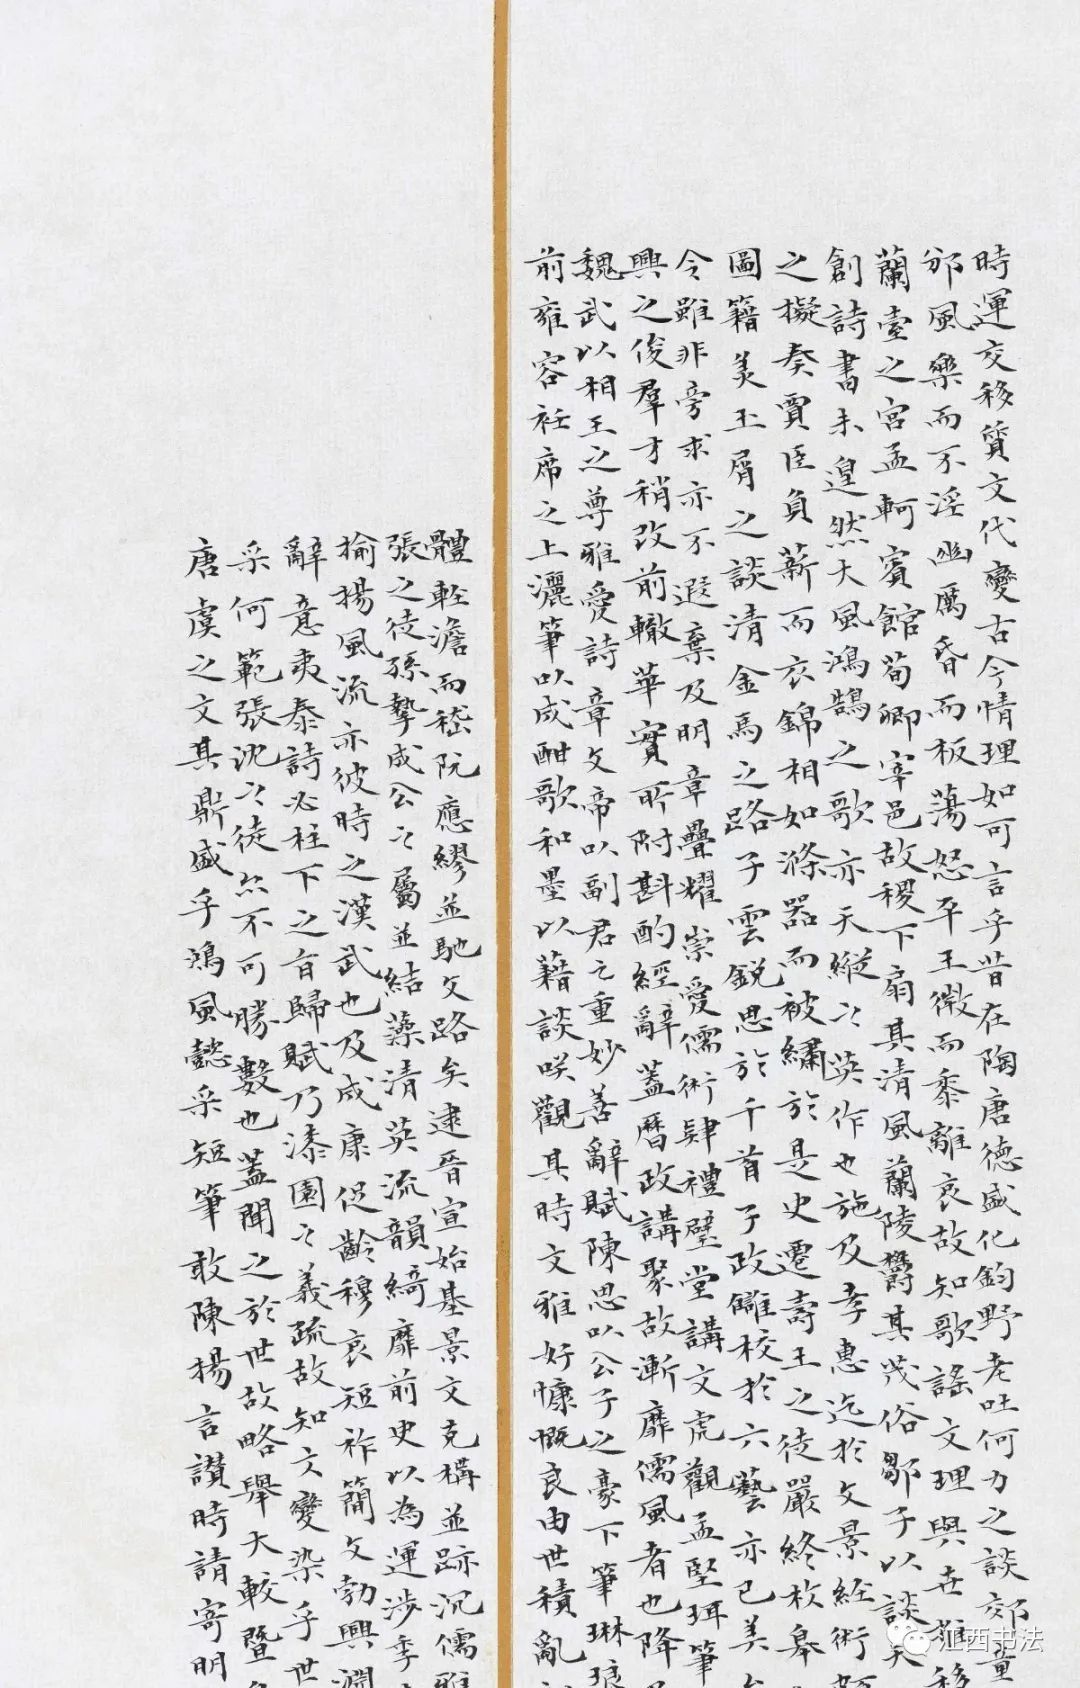 時運交移質文代變古今情理如可言乎昔在陶唐德盛化鈞野老吐何力之談郊童
邠風樂而不淫幽厲昏而板蕩怒平王微而黍離哀故知歌謠文理與世推移
蘭臺之宮孟軻賓館荀卿宰邑故稷下扇其清風蘭陵鬱其茂俗鄒子以談天
創詩書未遑然大風鴻鵠之歌亦天縱之英作也施及孝惠迄於文景經術頗
之擬奏賈臣負薪而衣錦相如滌器而被繡於是史遷壽王之徒嚴終枚皋
圖籍美玉屑之談清金馬之路子雲銳思於千首子政讎校於六藝亦已美
令雖非旁求亦不遐棄及明章疊耀崇愛儒術肄禮璧堂講文虎觀孟堅珥筆
興之俊羣才稍改前轍華實所附斟酌經辭蓋曆政講聚故漸靡儒風者也降
魏武以相王之尊雅愛詩章文帝以副君之重妙善辭賦陳思以公子之豪下筆琳琅
前雍容衽席之上灑筆以成酣歌和墨以藉談咲觀其時文雅好慷慨良由世積亂
體輕澹而嵇阮應繆並馳文路矣逮晉宣始基景文克構並跡沉儒雅
張之徒孫摯成公之屬並結藻清英流韻綺靡前史以為運涉季
揄揚風流亦彼時之漢武也及成康促齡穆哀短祚簡文勃興淵
辭意夷泰詩必柱下之旨歸賦乃漆園之義疏故知文變染乎世
采何範張沈之徒亦不可勝數也蓋聞之於世故略舉大較暨
唐虞之文其鼎盛乎鴻風懿采短筆敢陳揚言讃時請寄明
江西书法